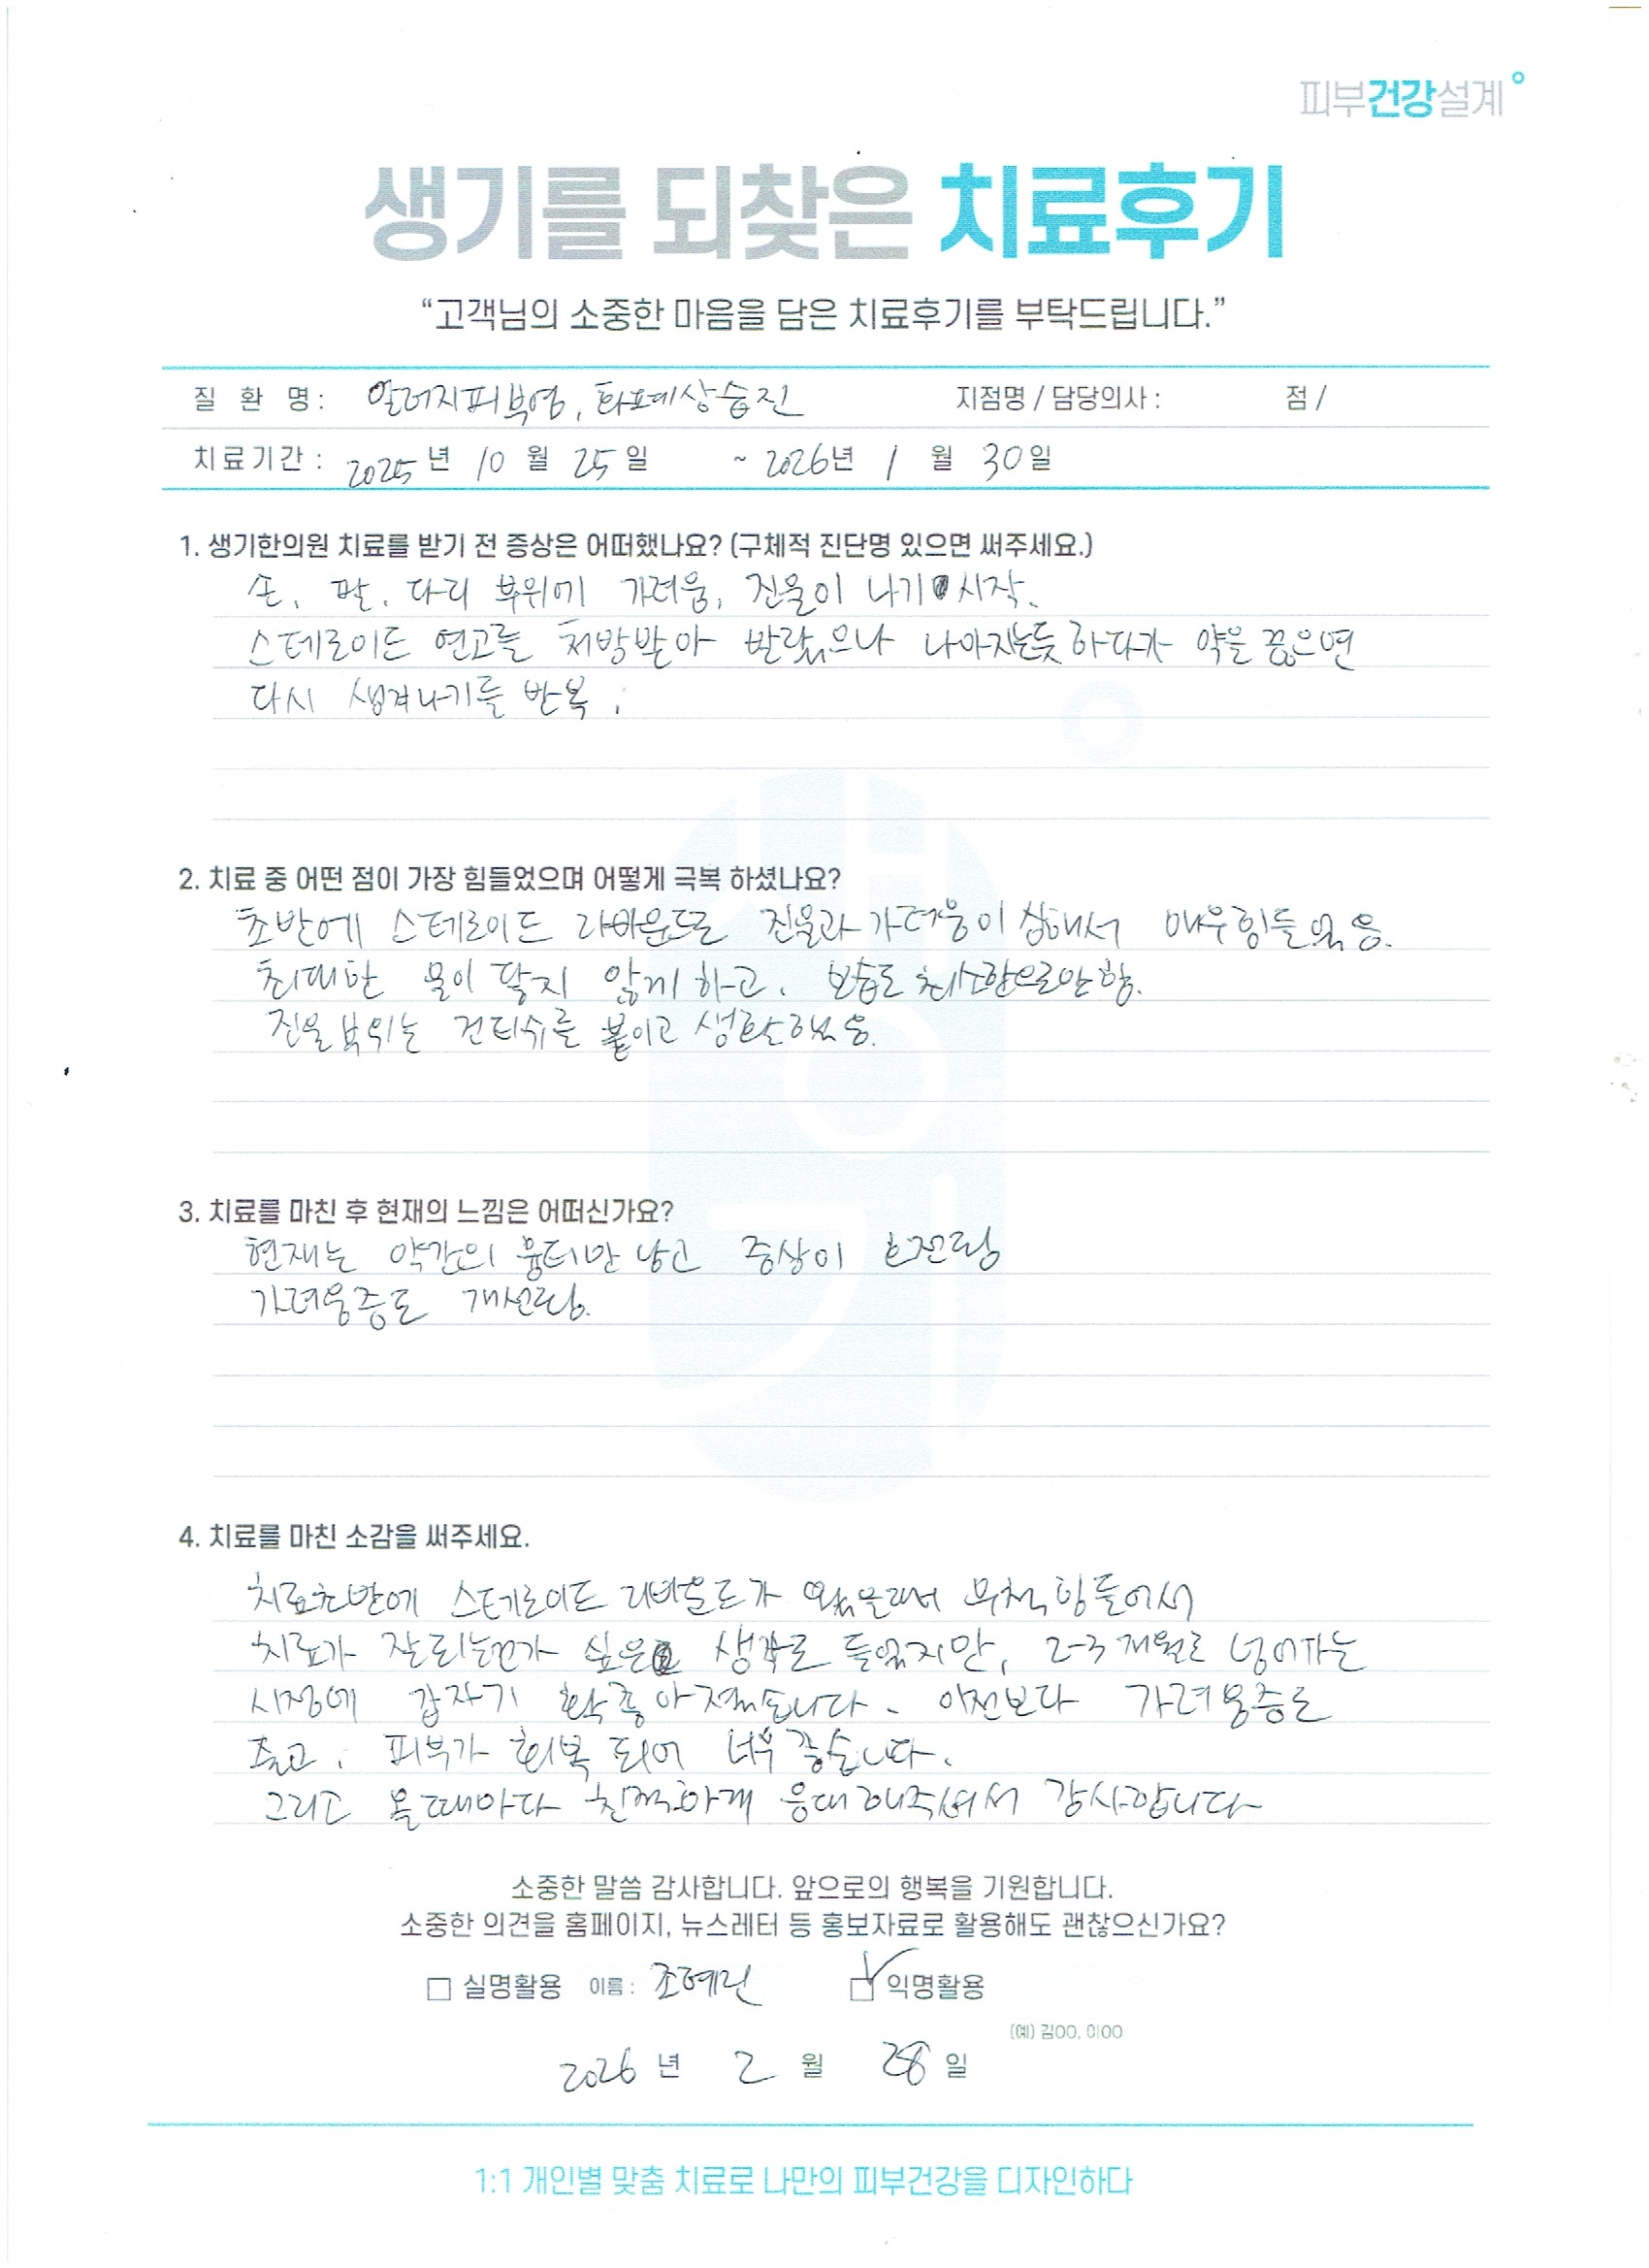 피부건강설계
생기를 되찾은 치료후기
“고객님의 소중한 마음을 담은 치료후기를 부탁드립니다.”
질 환 명 : 알러지피부염, 화폐상습진 지점명 / 담당의사 : 점 /
치료기간 : 2025년 10 월 25 일 ~ 2026년 1 월 30일
1. 생기한의원 치료를 받기 전 증상은 어떠했나요? (구체적 진단명 있으면 써주세요.)
손, 팔, 다리 부위에 가려움, 진물이 나기 시작.
스테로이드 연고를 처방받아 발랐으나 나아지는듯 하다가 약을 끊으면
다시 생겨나기를 반복.
2. 치료 중 어떤 점이 가장 힘들었으며 어떻게 극복 하셨나요?
초반에 스테로이드 라바운드로 진물과 가려움이 심해서 매우 힘들었음.
최대한 물이 닿지 않게 하고, 보습도 최소한으로만 함.
진물 부위는 건티슈를 붙이고 생활했음.
3. 치료를 마친 후 현재의 느낌은 어떠신가요?
현재는 약간의 흉터만 남고 증상이 호전됨
가려움증도 개선됨.
4. 치료를 마친 소감을 써주세요.
치료초반에 스테로이드 리바운드가 왔을때 무척 힘들어서
치료가 잘되는건가 싶은 생각도 들었지만, 2-3개월로 넘어가는
시점에 갑자기 확 좋아졌습니다. 이전보다 가려움증도
줄고, 피부가 회복 되어 너무 좋습니다.
그리고 올때마다 친절하게 응대해주셔서 감사합니다
소중한 말씀 감사합니다. 앞으로의 행복을 기원합니다.
소중한 의견을 홈페이지, 뉴스레터 등 홍보자료로 활용해도 괜찮으신가요?
실명활용 이름 : 조예린 익명활용
(예) 김OO, 이OO
2026 년 2 월 28 일
1:1 개인별 맞춤 치료로 나만의 피부건강을 디자인하다